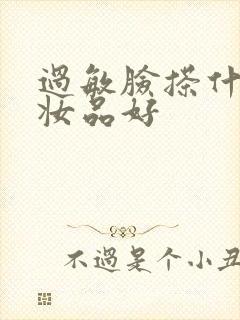 過敏臉搽什
妝品好
不過是个小丑